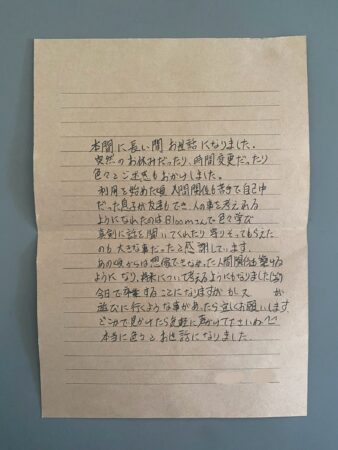 本当に長い間お世話になりました。
突然のお休みだったり、時間変更だったり
色々とご迷惑もおかけしました。
利用を始めた頃 人間関係も苦手で自己中
だった息子が友達もでき、人の事を考える
ようになれたのはBloomさんで色々学び
真剣に話を聞いてくれたり寄りそってもらえた
のも大きな事だったと感謝しています。
あの頃からは想像できなかった人間関係も築ける
ようになり、将来について考えるようにもなりました
今日で卒業することになりますが も が
遊びに行くような事があったら宜しくお願いします
どこかで見かけたら気軽に声かけて下さいね^^
本当に色々とお世話になりました。